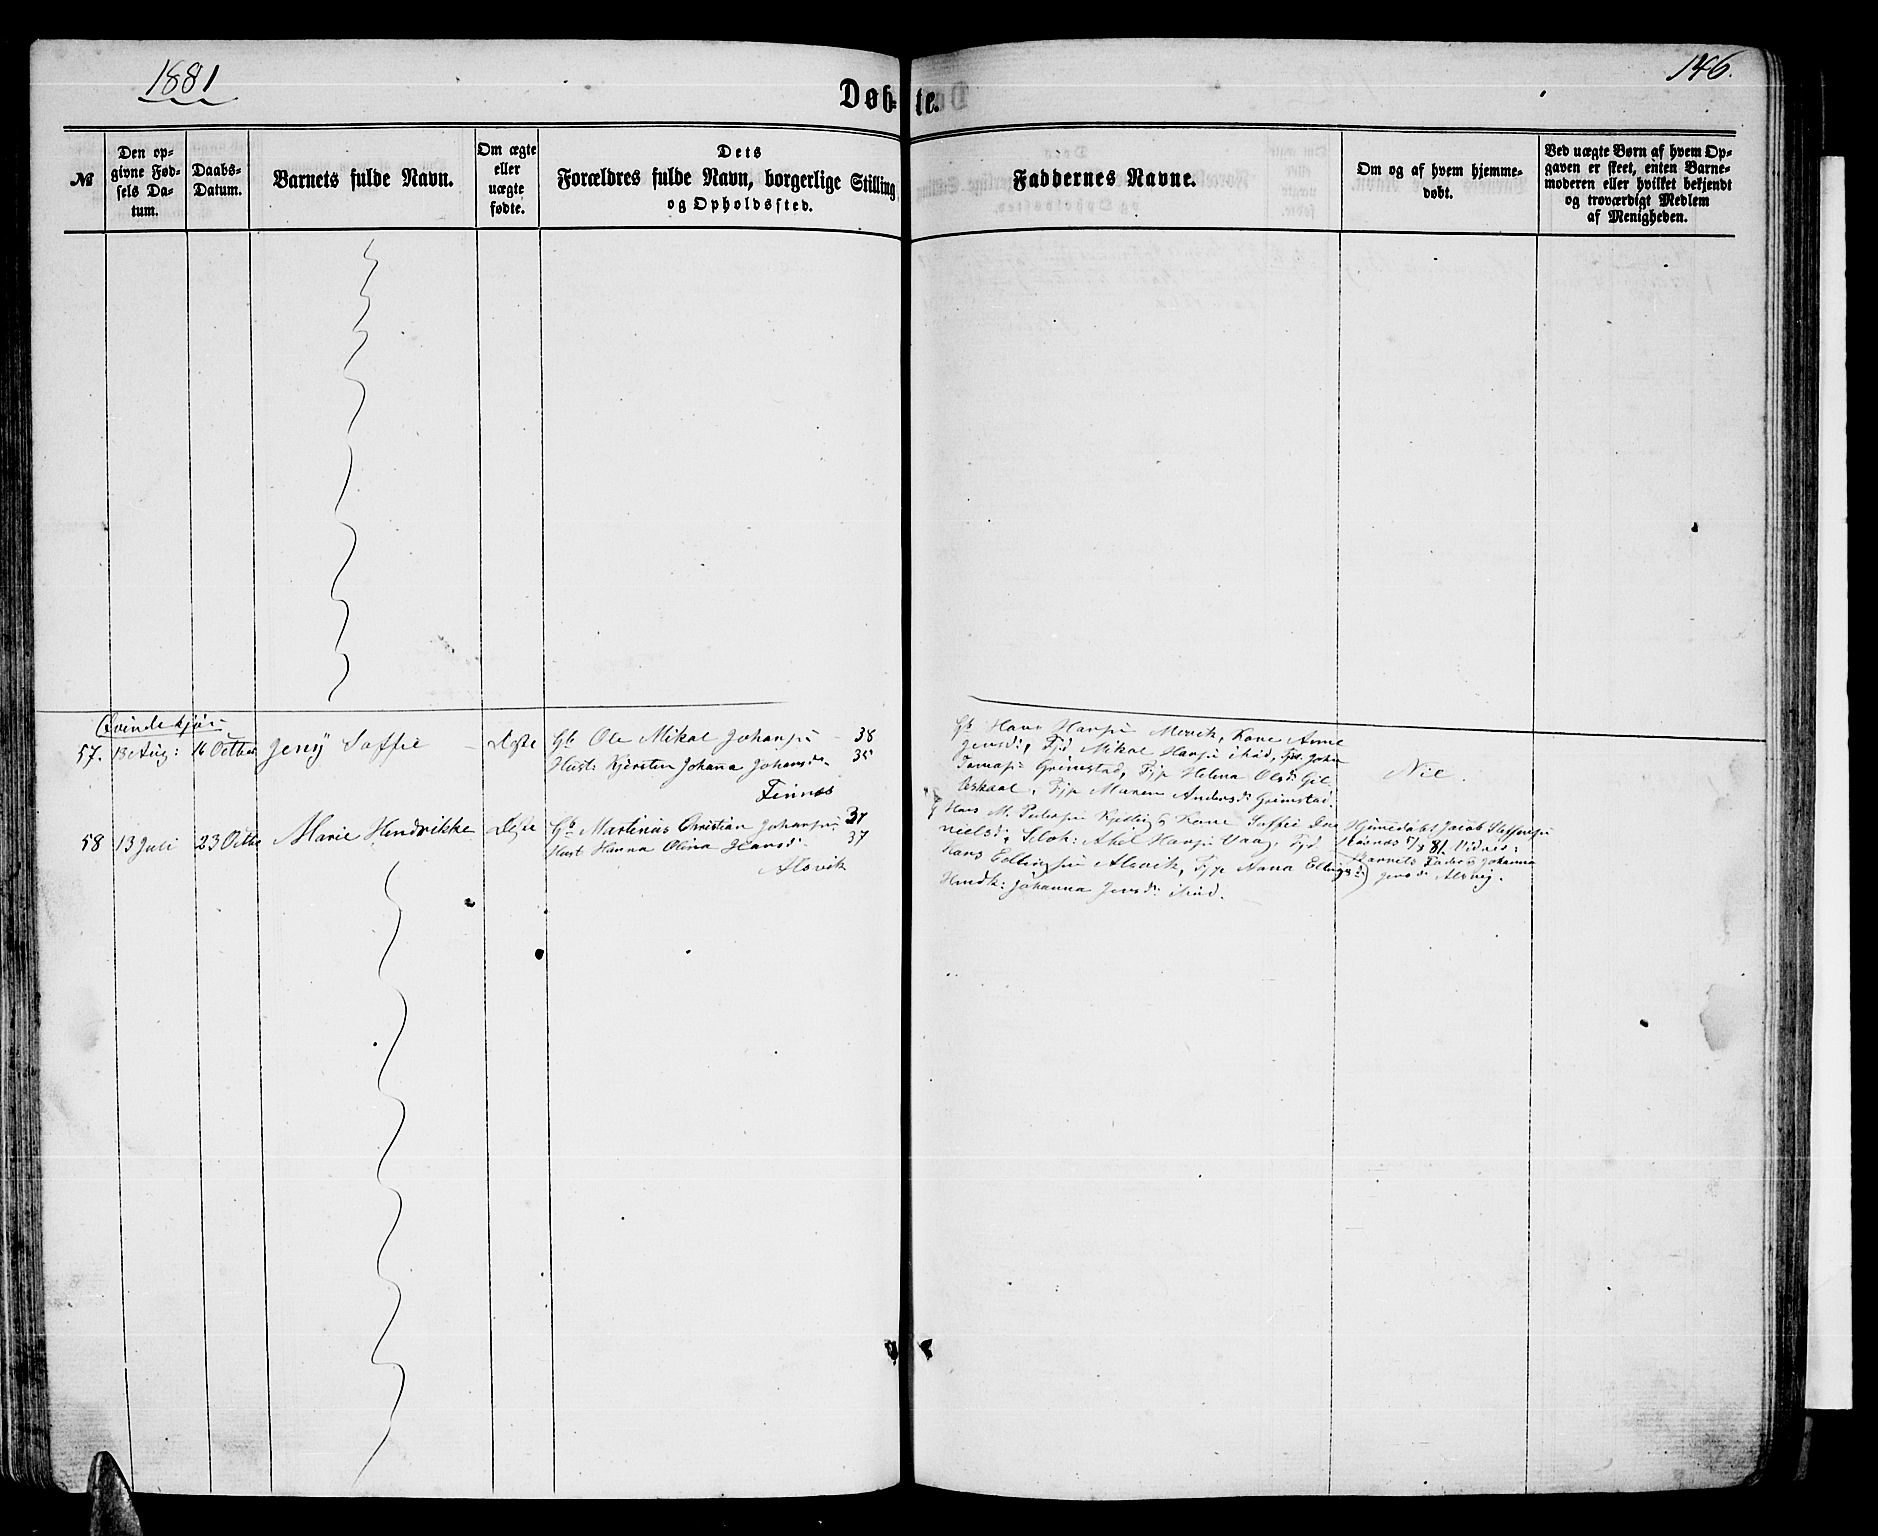 1881
146.
Døb-te.
№
Den op-
givne Fød-
sels Da-
tum.
Daabs-
Datum.
Barnets fulde Navn.
Om ægte
eller
uægte
fødte.
Dets
Forældres fulde Navn, borgerlige Stilling
og Opholdssted.
Faddernes Navne.
Om og af hvem hjemme-
døbt.
Ved uægte Børn af hvem Op-
gaven er skeet, enten Barne-
moderen eller hvilket bekjendt
og troværdigt Medlem
af Menigheden.
Qvindekjøn
57. 13 Aug: 16 Octbr Jeny Soffie Ægte Gb Ole Mikal Johansen 38
Hust: Kjersten Johanna Johansdr 35
Finnes
Gb Hans Hansen Mevik, Kone Anne
Jensdr, Mikal Hansen ibid, John
Grimstad, Pige Helena Olsdr Gil-
deskaal, Pige Maren Andersdr Grimstad.
Nei.
58 13 Juli 23 Octbr Marie Hendrikke Ægte Gb Martinus Christian Johansen 37
Hust Hanna Olina Hansdr 37
Alsvik
Hans M. Pedersen Kone Soffie Da-
nielsdr Selsk: Hansen Vaag,
Hans Alsvik, Pige Anna
Johanna Jensdr ibid.
Hjemedøbt Jacob Steffensen
81. Vidnes:
Barnets Fader & Johanna
Jensdr Alsvig.